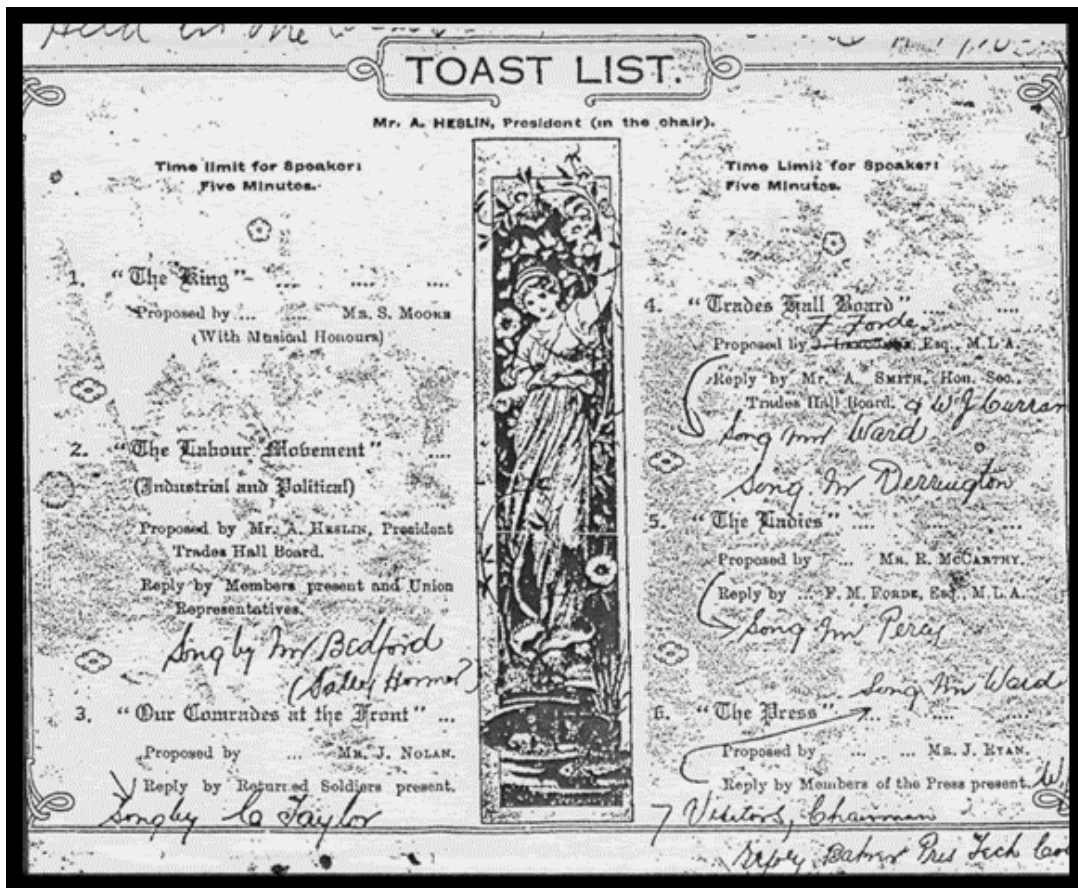 Held in the
TOAST LIST.
Mr. A. HESLIN, President (in the chair).
Time limit for Speaker:
Five Minutes.
1. "The King" .... .... ....
Proposed by ... .... MR. S. MOORE
(With Musical Honours)
2. "The Labour Movement" ....
(Industrial and Political)
Proposed by Mr. A. HESLIN, President
Trades Hall Board.
Reply by Members present and Union
Representatives.
Song by Mr Bedford
3. "Our Comrades at the Front" ...
Proposed by ... MR. J. NOLAN.
Reply by Returned Soldiers present.
Song by Taylor
Time Limit for Speaker:
Five Minutes.
4. "Trades Hall Board" .... ....
F Forde
Proposed by J. Esq., M.L.A.
Reply by Mr. A. SMITH, Hon. Sec.,
Trades Hall Board. & W J Curran
Song Mr Ward
Song Mr Derrington
5. "The Ladies" .... .... ....
Proposed by ... MR. R. MCCARTHY.
Reply by ... F. M. FORDE, Esq., M.L.A.
Song Mr Percy
Song Mr Ward
6. "The Press" ... .... ....
Proposed by ... ... MR. J. RYAN.
Reply by Members of the Press present.
7 Visitors, Chairman
Pres Tech